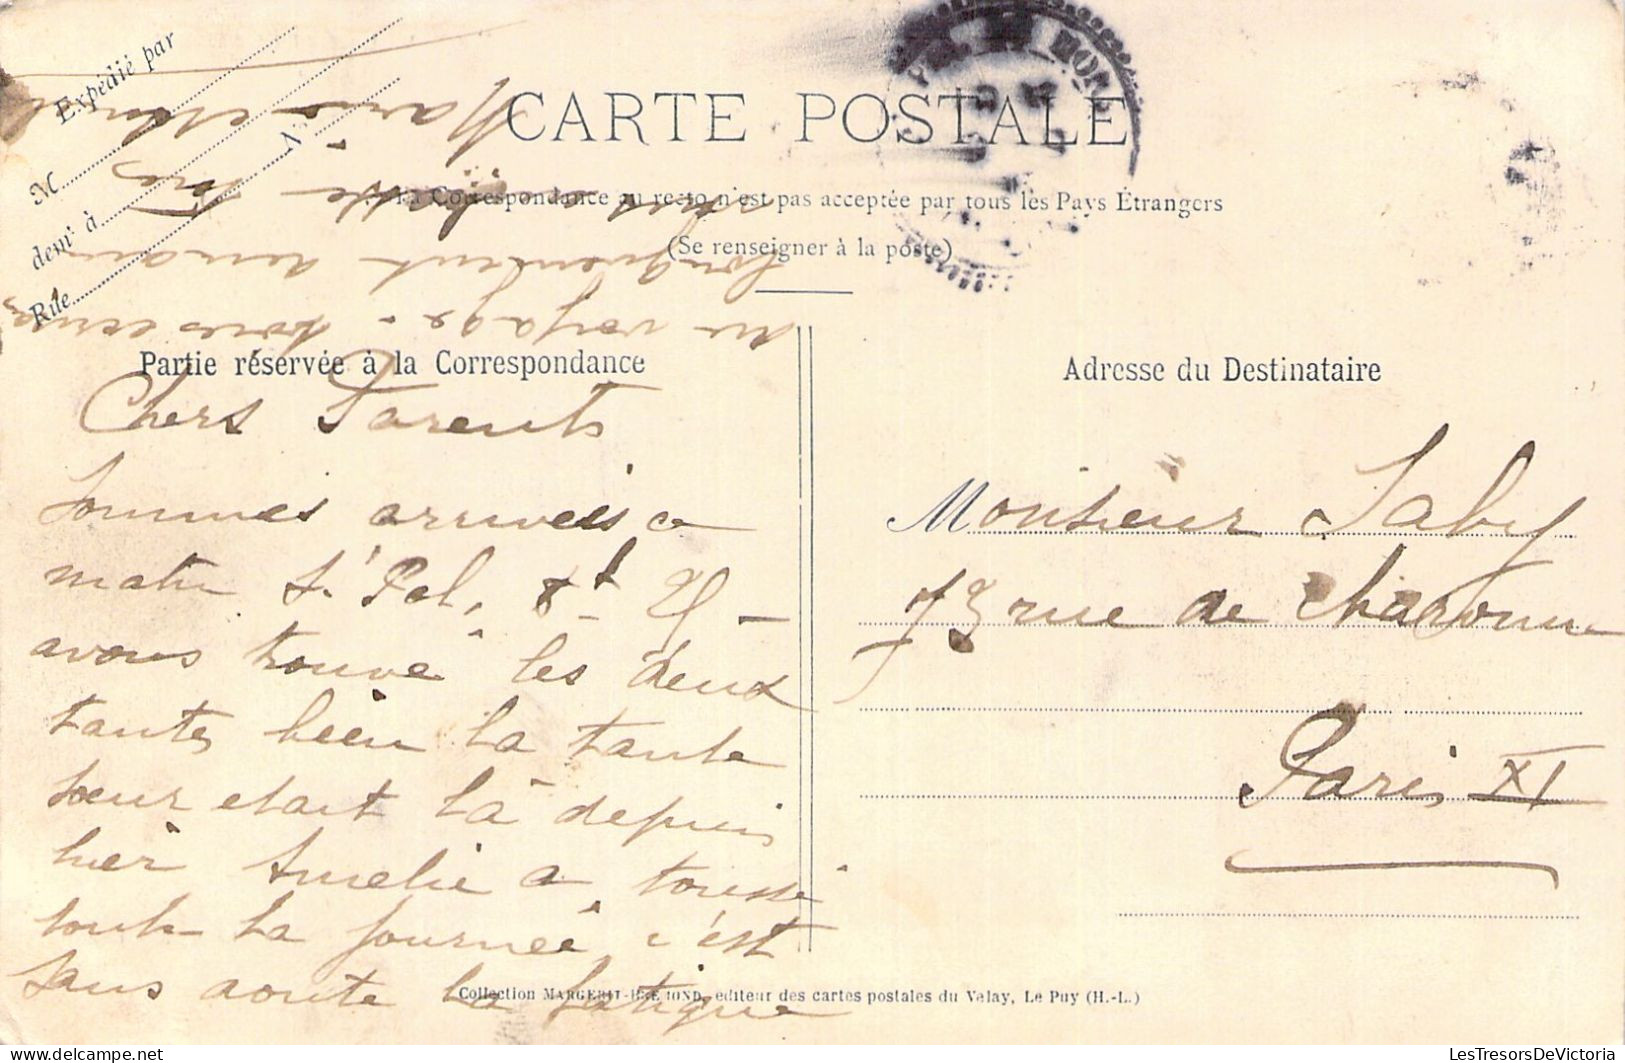 Expédié par
M
demt à
Rue
N
CARTE POSTALE
La Correspondance au recto n'est pas acceptée par tous les Pays Étrangers
(Se renseigner à la poste)
Partie réservée à la Correspondance
Adresse du Destinataire
Chers Parents
Sommes arrivées ce
matin St Pol,
avons trouvé les deux
tantes bien la tante
soeur etait là depuis
hier Amelie a toussé
toute la journée, c'est
sans doute la fatigue
du voyage.
longuement demain
Marie
Monsieur Saby
73 rue de Charonne
Paris XI
Collection MARGERIT-BREMOND, editeur des cartes postales du Velay, Le Puy (H.-L.)
LesTresorsDeVictoria
LesTresorsDeVictoria.com